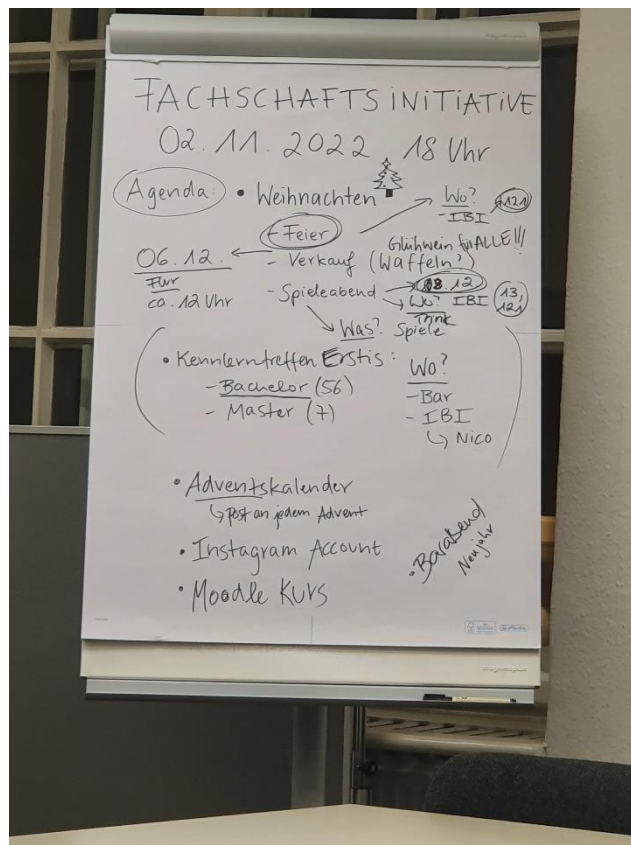 FACHSCHAFTSINITIATIVE
02.11.2022 18 Uhr
Agenda: • Weihnachten
Wo?
- IBI 121
- Feier
Glühwein für ALLE!!!
06.12.
Flur
ca. 12 Uhr
- Verkauf (Waffeln?)
- Spieleabend
08.12
Wo? IBI 13, 121
Was? Spiele
Trink
• Kennlerntreffen Erstis:
- Bachelor (56)
- Master (7)
Wo?
- Bar
- IBI
Nico
• Adventskalender
Post an jedem Advent
• Instagram Account
• Moodle Kurs
• Barabend
Neujahr